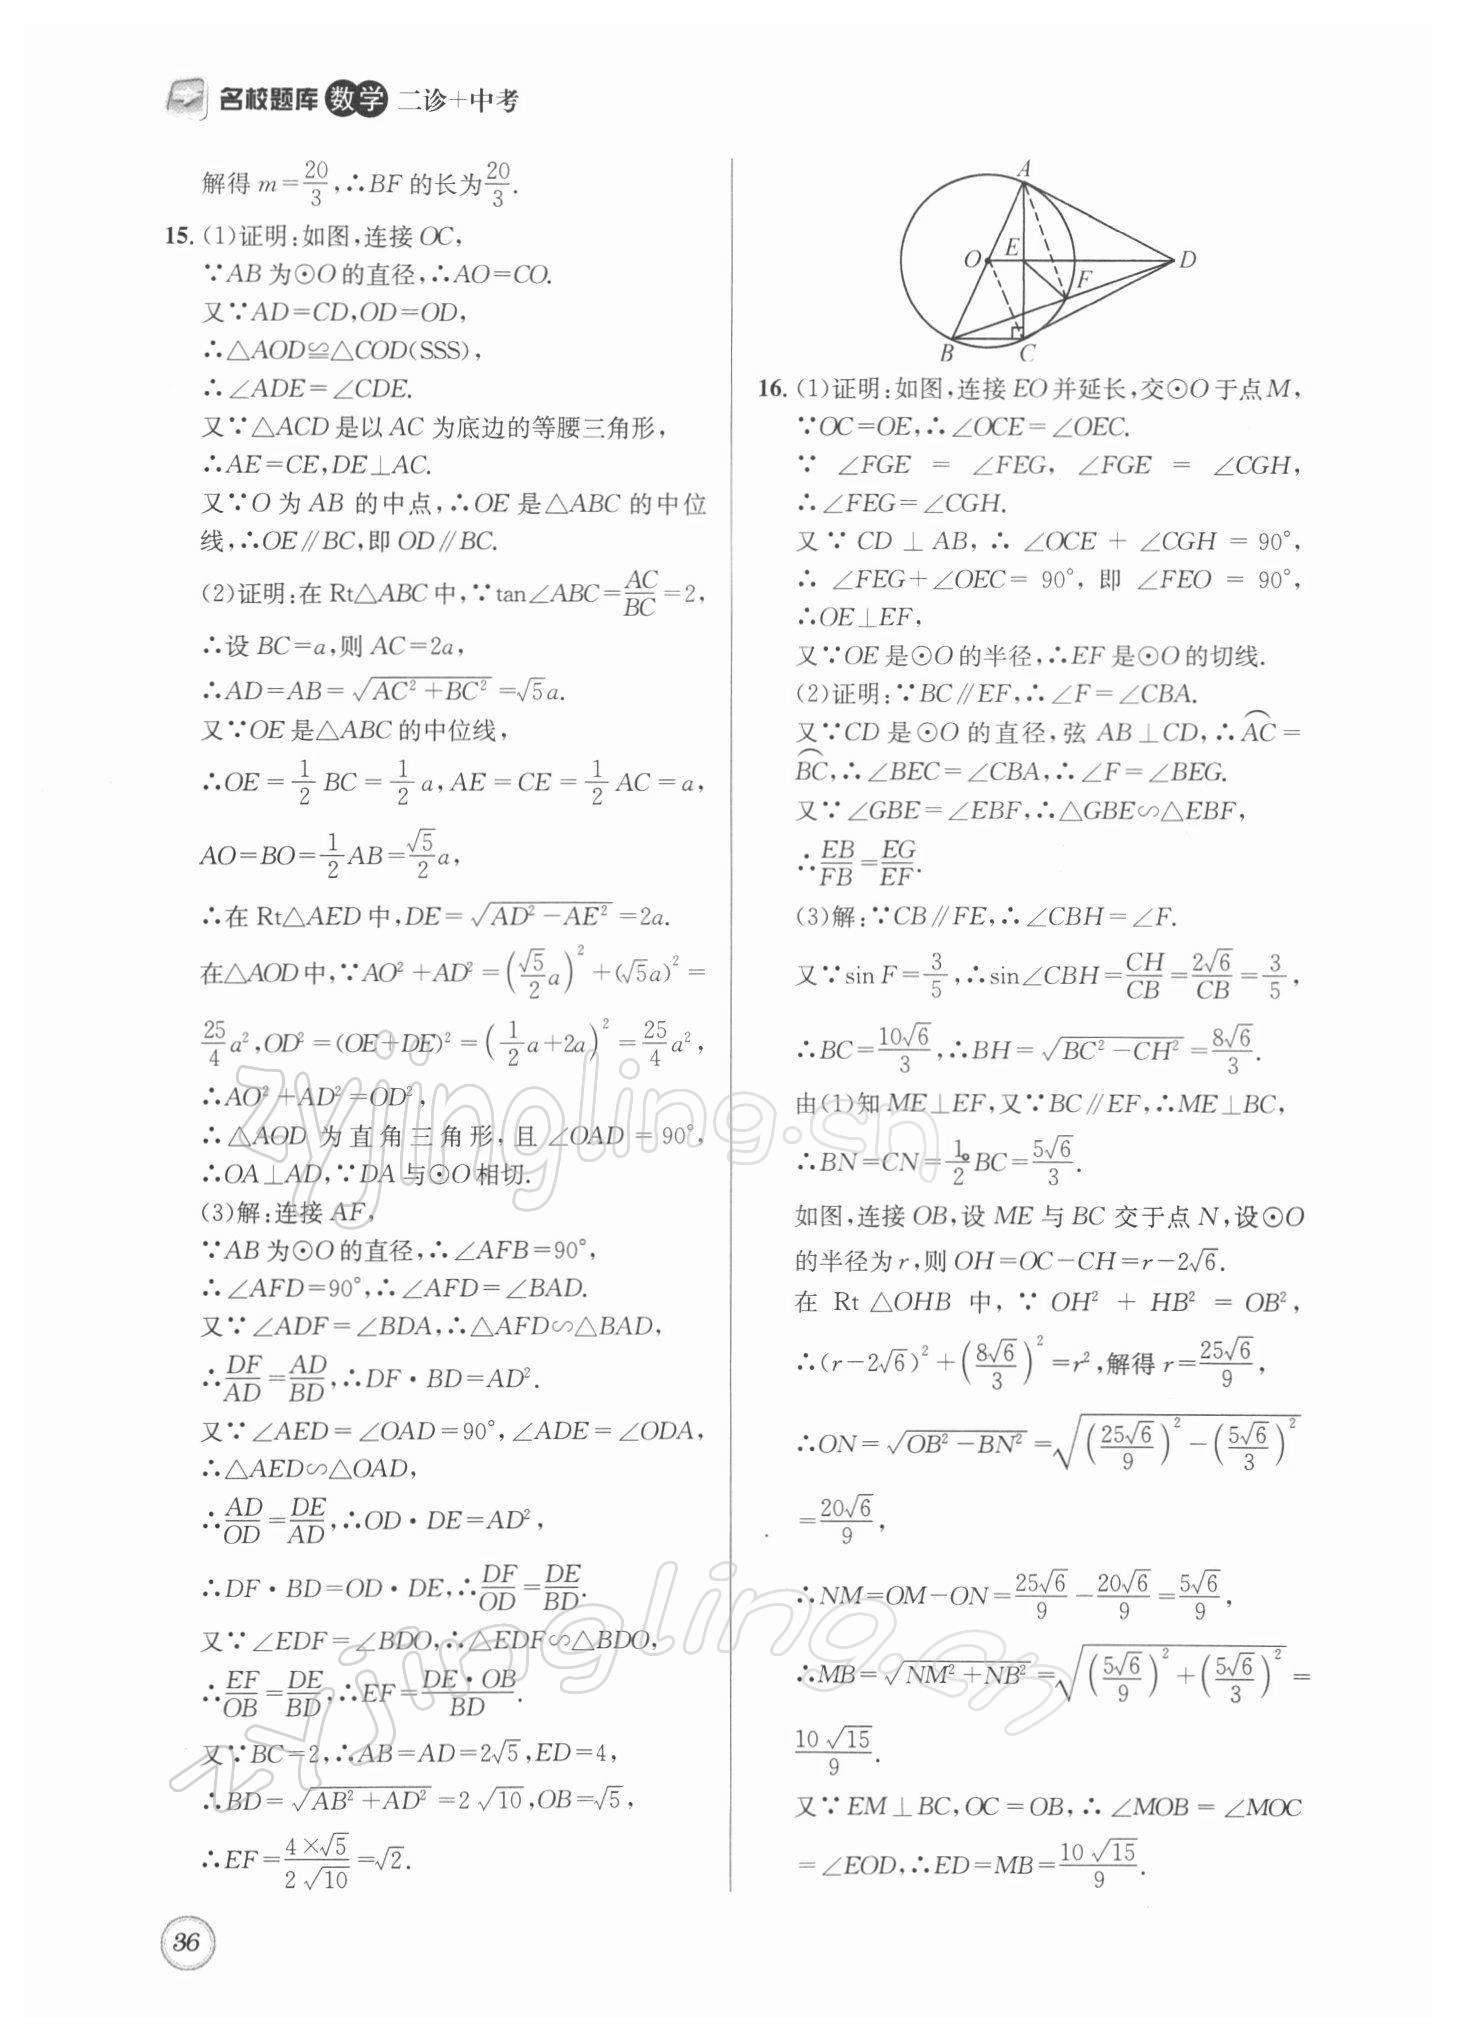 名校题库 数学 二诊+中考
解得 m=20/3,∴BF 的长为20/3.
15. (1)证明:如图,连接 OC,
∵AB 为⊙O 的直径,∴AO=CO.
又∵AD=CD,OD=OD,
∴△AOD≌△COD(SSS),
∴∠ADE=∠CDE.
又∵△ACD 是以 AC 为底边的等腰三角形,
∴AE=CE,DE⊥AC.
又∵O 为 AB 的中点,∴OE 是△ABC 的中位
线,∴OE∥BC,即 OD∥BC.
(2)证明:在 Rt△ABC 中,∵tan∠ABC=AC/BC=2,
∴设 BC=a,则 AC=2a,
∴AD=AB=√(AC²+BC²)=√5a.
又∵OE 是△ABC 的中位线,
∴OE=1/2 BC=1/2 a,AE=CE=1/2 AC=a,
AO=BO=1/2 AB=√5/2 a,
∴在 Rt△AED 中,DE=√(AD²-AE²)=2a.
在△AOD 中,∵AO²+AD²=(√5/2 a)²+(√5a)²=
25/4 a²,OD²=(OE+DE)²=(1/2 a+2a)²=25/4 a²,
∴AO²+AD²=OD²,
∴△AOD 为直角三角形,且∠OAD=90°,
∴OA⊥AD,∵DA 与⊙O 相切.
(3)解:连接 AF,
∵AB 为⊙O 的直径,∴∠AFB=90°,
∴∠AFD=90°,∴∠AFD=∠BAD.
又∵∠ADF=∠BDA,∴△AFD∽△BAD,
∴DF/AD=AD/BD,∴DF·BD=AD².
又∵∠AED=∠OAD=90°,∠ADE=∠ODA,
∴△AED∽△OAD,
∴AD/OD=DE/AD,∴OD·DE=AD²,
∴DF·BD=OD·DE,∴DF/OD=DE/BD.
又∵∠EDF=∠BDO,∴△EDF∽△BDO,
∴EF/OB=DE/BD,∴EF=DE·OB/BD.
又∵BC=2,∴AB=AD=2√5,ED=4,
∴BD=√(AB²+AD²)=2√10,OB=√5,
∴EF=4×√5/2√10=√2.
A
O
E
D
F
B
C
16. (1)证明:如图,连接 EO 并延长,交⊙O 于点 M,
∵OC=OE,∴∠OCE=∠OEC.
∵∠FGE=∠FEG,∠FGE=∠CGH,
∴∠FEG=∠CGH.
又∵CD⊥AB,∴∠OCE+∠CGH=90°,
∴∠FEG+∠OEC=90°,即∠FEO=90°,
∴OE⊥EF,
又∵OE 是⊙O 的半径,∴EF 是⊙O 的切线.
(2)证明:∵BC∥EF,∴∠F=∠CBA.
又∵CD 是⊙O 的直径,弦 AB⊥CD,∴⌒AC=
⌒BC,∴∠BEC=∠CBA,∴∠F=∠BEG.
又∵∠GBE=∠EBF,∴△GBE∽△EBF,
∴EB/FB=EG/EF.
(3)解:∵CB∥FE,∴∠CBH=∠F.
又∵sin F=3/5,∴sin∠CBH=CH/CB=2√6/CB=3/5,
∴BC=10√6/3,∴BH=√(BC²-CH²)=8√6/3.
由(1)知 ME⊥EF,又∵BC∥EF,∴ME⊥BC,
∴BN=CN=1/2 BC=5√6/3.
如图,连接 OB,设 ME 与 BC 交于点 N,设⊙O
的半径为 r,则 OH=OC-CH=r-2√6.
在 Rt△OHB 中,∵OH²+HB²=OB²,
∴(r-2√6)²+(8√6/3)²=r²,解得 r=25√6/9,
∴ON=√(OB²-BN²)=√((25√6/9)²-(5√6/3)²)
=20√6/9,
∴NM=OM-ON=25√6/9-20√6/9=5√6/9,
∴MB=√(NM²+NB²)=√((5√6/9)²+(5√6/3)²)=
10√15/9.
又∵EM⊥BC,OC=OB,∴∠MOB=∠MOC
=∠EOD,∴ED=MB=10√15/9.
zyjingling.cn
zyjingling.cn
36